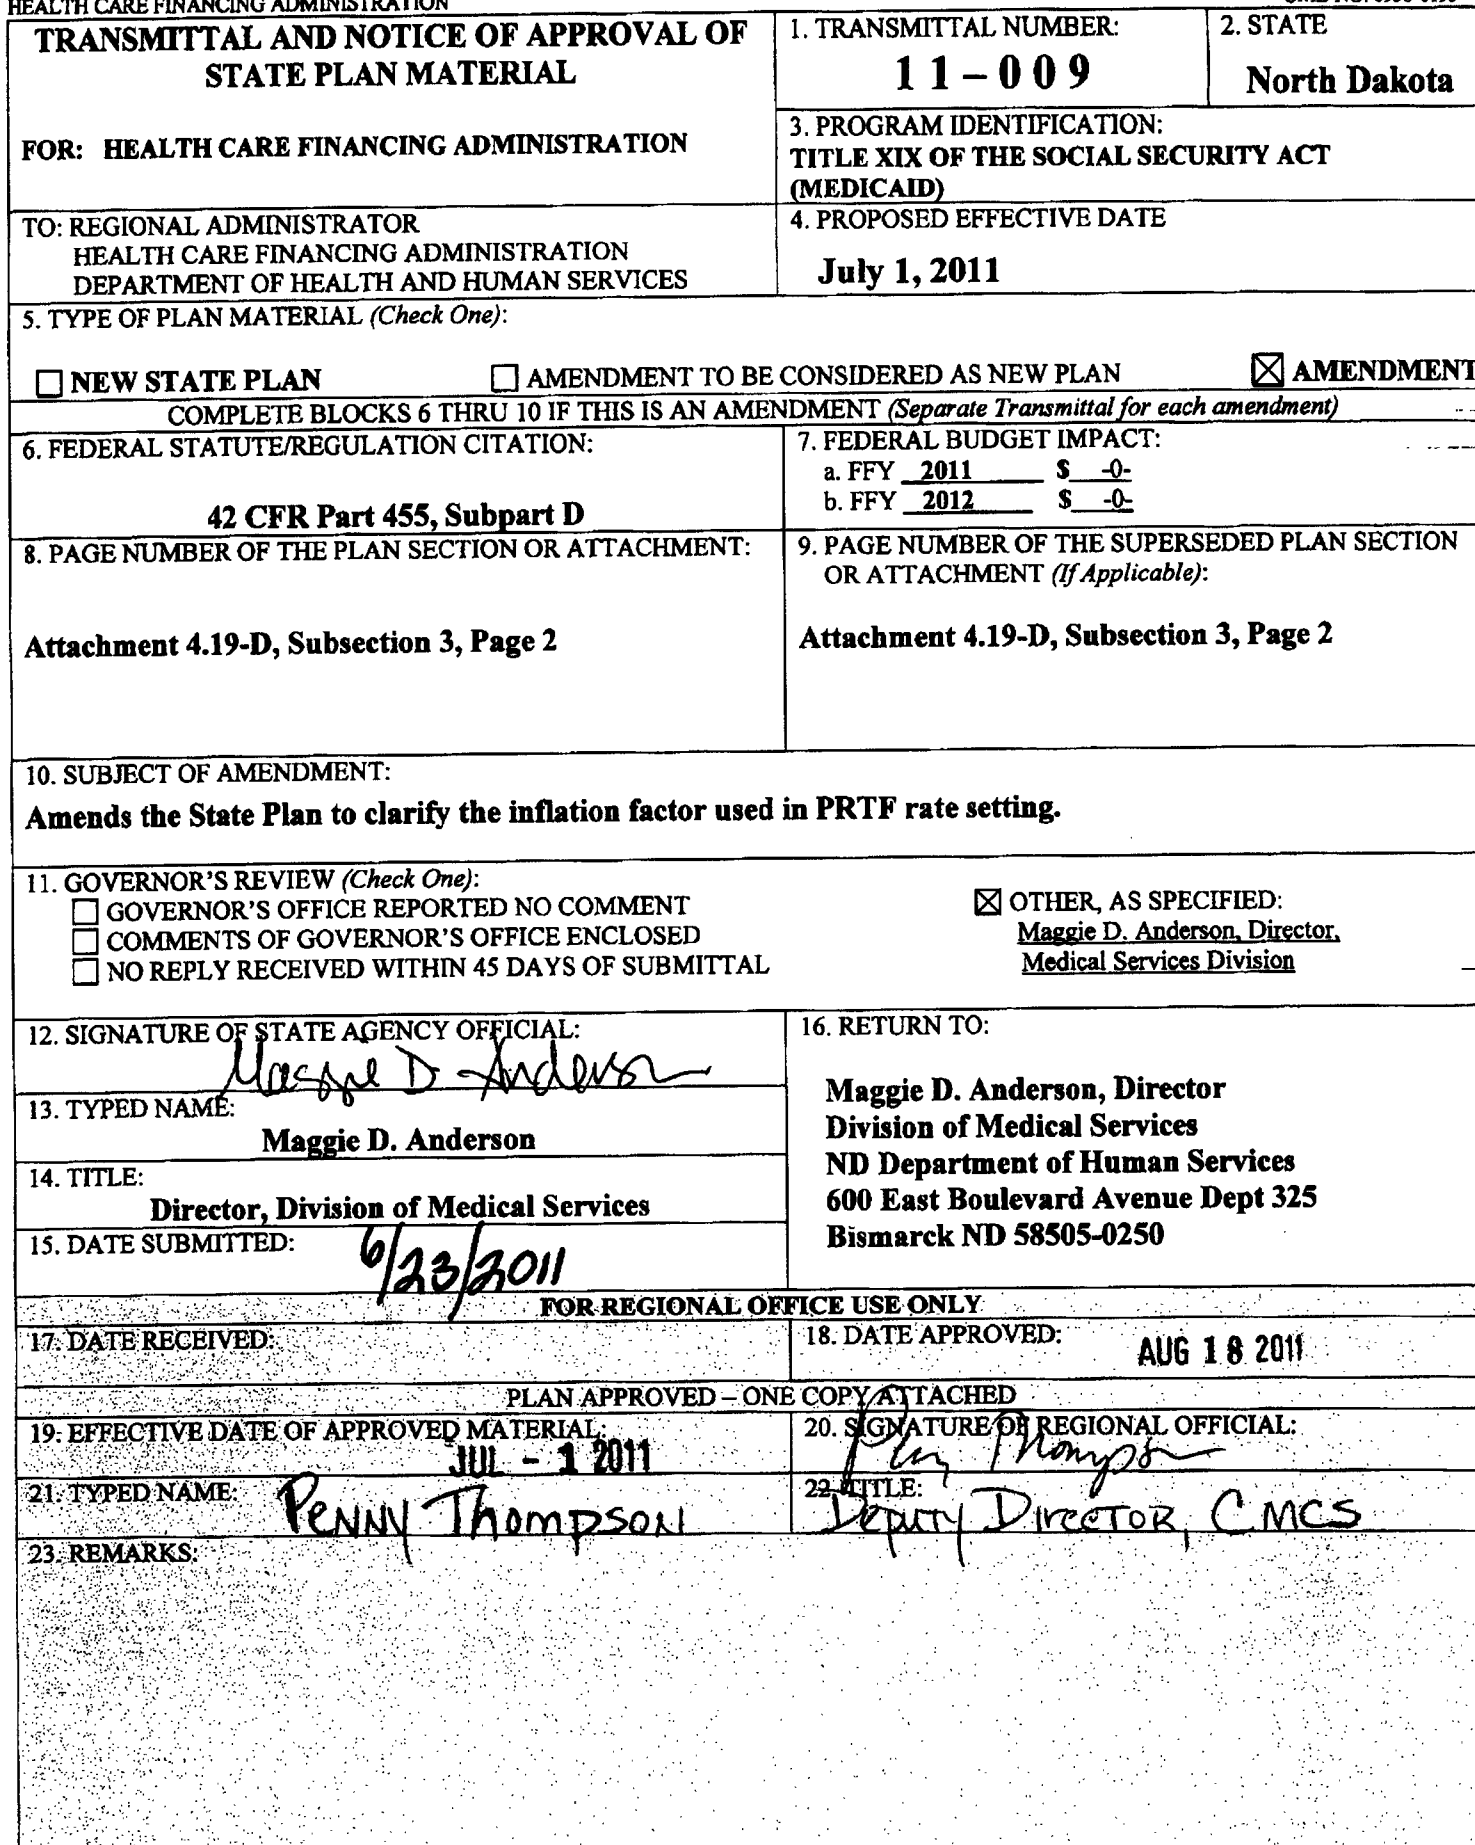 HEALTH CARE FINANCING ADMINISTRATION
TRANSMITTAL AND NOTICE OF APPROVAL OF
STATE PLAN MATERIAL
FOR: HEALTH CARE FINANCING ADMINISTRATION
1. TRANSMITTAL NUMBER:
11-009
2. STATE
North Dakota
3. PROGRAM IDENTIFICATION:
TITLE XIX OF THE SOCIAL SECURITY ACT
(MEDICAID)
TO: REGIONAL ADMINISTRATOR
HEALTH CARE FINANCING ADMINISTRATION
DEPARTMENT OF HEALTH AND HUMAN SERVICES
4. PROPOSED EFFECTIVE DATE
July 1, 2011
5. TYPE OF PLAN MATERIAL (Check One):
☐ NEW STATE PLAN ☐ AMENDMENT TO BE CONSIDERED AS NEW PLAN ☒ AMENDMENT
COMPLETE BLOCKS 6 THRU 10 IF THIS IS AN AMENDMENT (Separate Transmittal for each amendment)
6. FEDERAL STATUTE/REGULATION CITATION:
42 CFR Part 455, Subpart D
7. FEDERAL BUDGET IMPACT:
a. FFY 2011 $ -0-
b. FFY 2012 $ -0-
8. PAGE NUMBER OF THE PLAN SECTION OR ATTACHMENT:
Attachment 4.19-D, Subsection 3, Page 2
9. PAGE NUMBER OF THE SUPERSEDED PLAN SECTION
OR ATTACHMENT (If Applicable):
Attachment 4.19-D, Subsection 3, Page 2
10. SUBJECT OF AMENDMENT:
Amends the State Plan to clarify the inflation factor used in PRTF rate setting.
11. GOVERNOR'S REVIEW (Check One):
☐ GOVERNOR'S OFFICE REPORTED NO COMMENT
☐ COMMENTS OF GOVERNOR'S OFFICE ENCLOSED
☐ NO REPLY RECEIVED WITHIN 45 DAYS OF SUBMITTAL
☒ OTHER, AS SPECIFIED:
Maggie D. Anderson, Director,
Medical Services Division
12. SIGNATURE OF STATE AGENCY OFFICIAL:
Maggie D Anderson
13. TYPED NAME:
Maggie D. Anderson
14. TITLE:
Director, Division of Medical Services
15. DATE SUBMITTED:
6/23/2011
16. RETURN TO:
Maggie D. Anderson, Director
Division of Medical Services
ND Department of Human Services
600 East Boulevard Avenue Dept 325
Bismarck ND 58505-0250
FOR REGIONAL OFFICE USE ONLY
17. DATE RECEIVED:
18. DATE APPROVED:
AUG 18 2011
PLAN APPROVED – ONE COPY ATTACHED
19. EFFECTIVE DATE OF APPROVED MATERIAL:
JUL - 1 2011
20. SIGNATURE OF REGIONAL OFFICIAL:
Penny Thompson
21. TYPED NAME:
Penny Thompson
22. TITLE:
Deputy Director, CMCS
23. REMARKS: